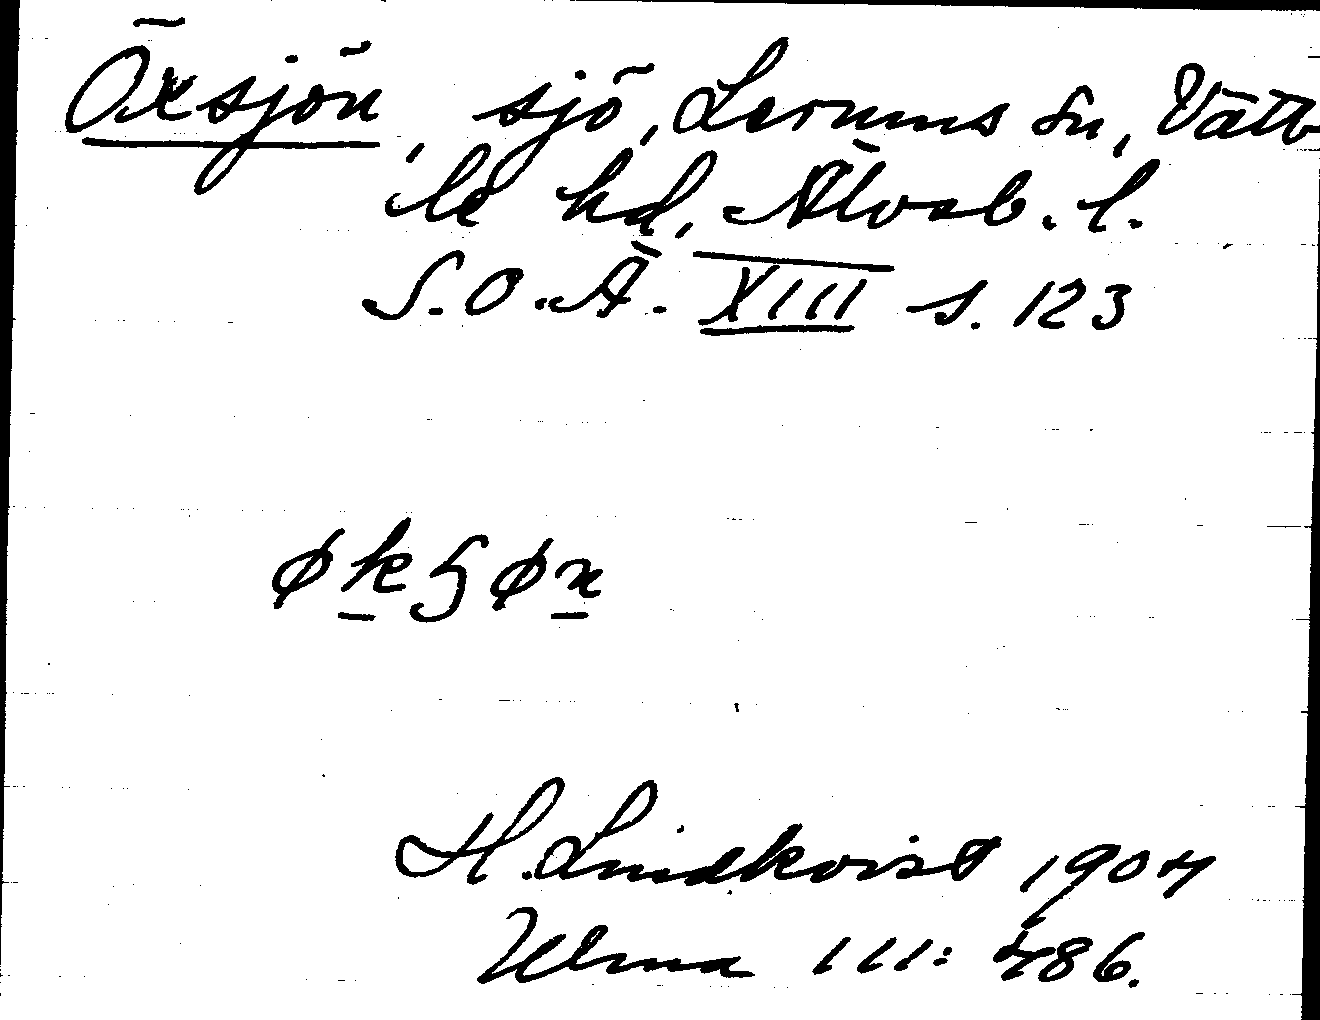 Öxsjön, sjö, Lerums sn, Vätt
le hd, Älvsb. l.
S.O.Ä. XIII s. 123
økʃøn
H. Lindkvist 1904
Ulma 111: 486.